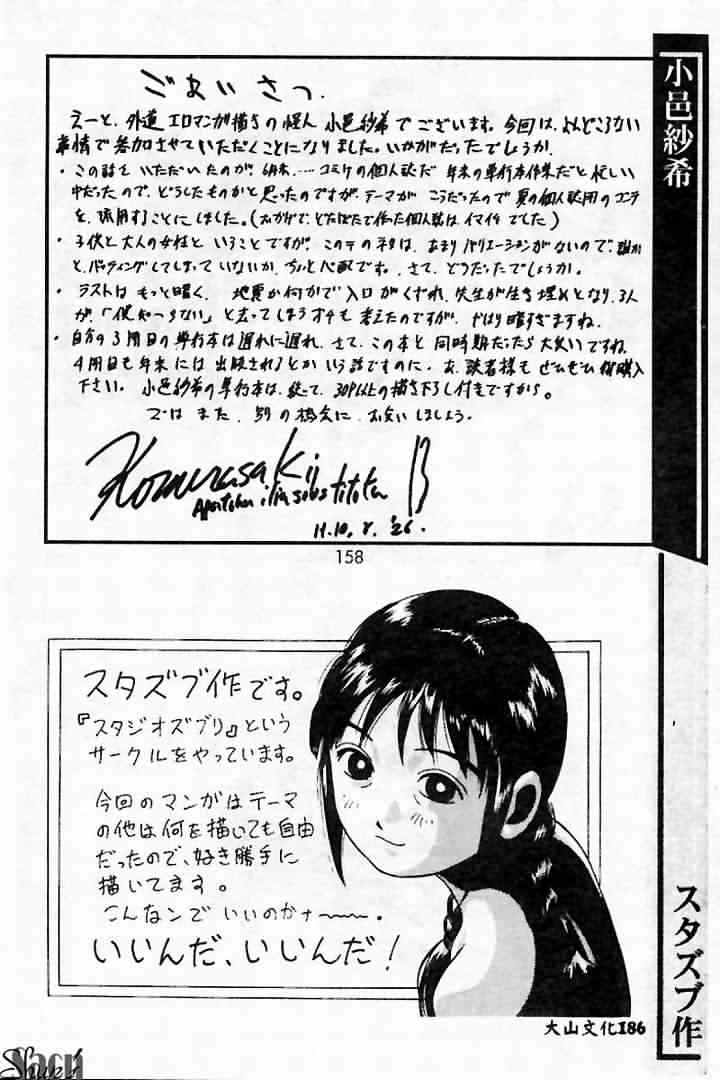 小邑紗希
ごあいさつ.
えーと、外道エロマンガ描きの怪人 小邑紗希でございます。今回は、よんどころない
事情で参加させていただくことになりました。いかがだったでしょうか.
・この話を いただいたのが、6月末、…… コミケの個人誌だ 年末の単行本作業だと忙しい
中だったので、どうしたものかと思ったのですが、テーマが こうだったので夏の個人誌用のコンテ
を、流用することにしました。(おかげで、どたばたで作った個人誌は、イマイチでした)
・子供と大人の女性と いうことですが、このテのネタは、あまりバリエーションがないので、誰か
と、バッティングしてしまっていないか、ちょっと心配です。さて、どうだったでしょうか。
・ラストは もっと暗く、地震か何かで入口がくずれ、先生が生き埋めとなり、3人
が、「仕方ないない」と去ってしまうオチも 考えたのですが、やはり暗すぎますね.
・自分の3冊目の単行本は遅れに遅れ、さて、この本と同時期だったら大笑いですね.
4冊目も年末には出版されるとかいう話ですのに. あ、読者様も ぜひぜひ御購入
下さい. 小邑紗希の単行本は、総て、30P以上の描き下ろし付きですから。
では また、別の機会に、お会いしましょう.
Komurasaki
11.10.8.'26.
158
スタズブ作です。
『スタジオズブリ』という
サークルをやっています。
今回のマンガはテーマ
の他は何を描いても自由
だったので、好き勝手に
描いてます。
こんなンでいいのかナ〜〜。
いいんだ、いいんだ!
スタズブ作
大山文化186